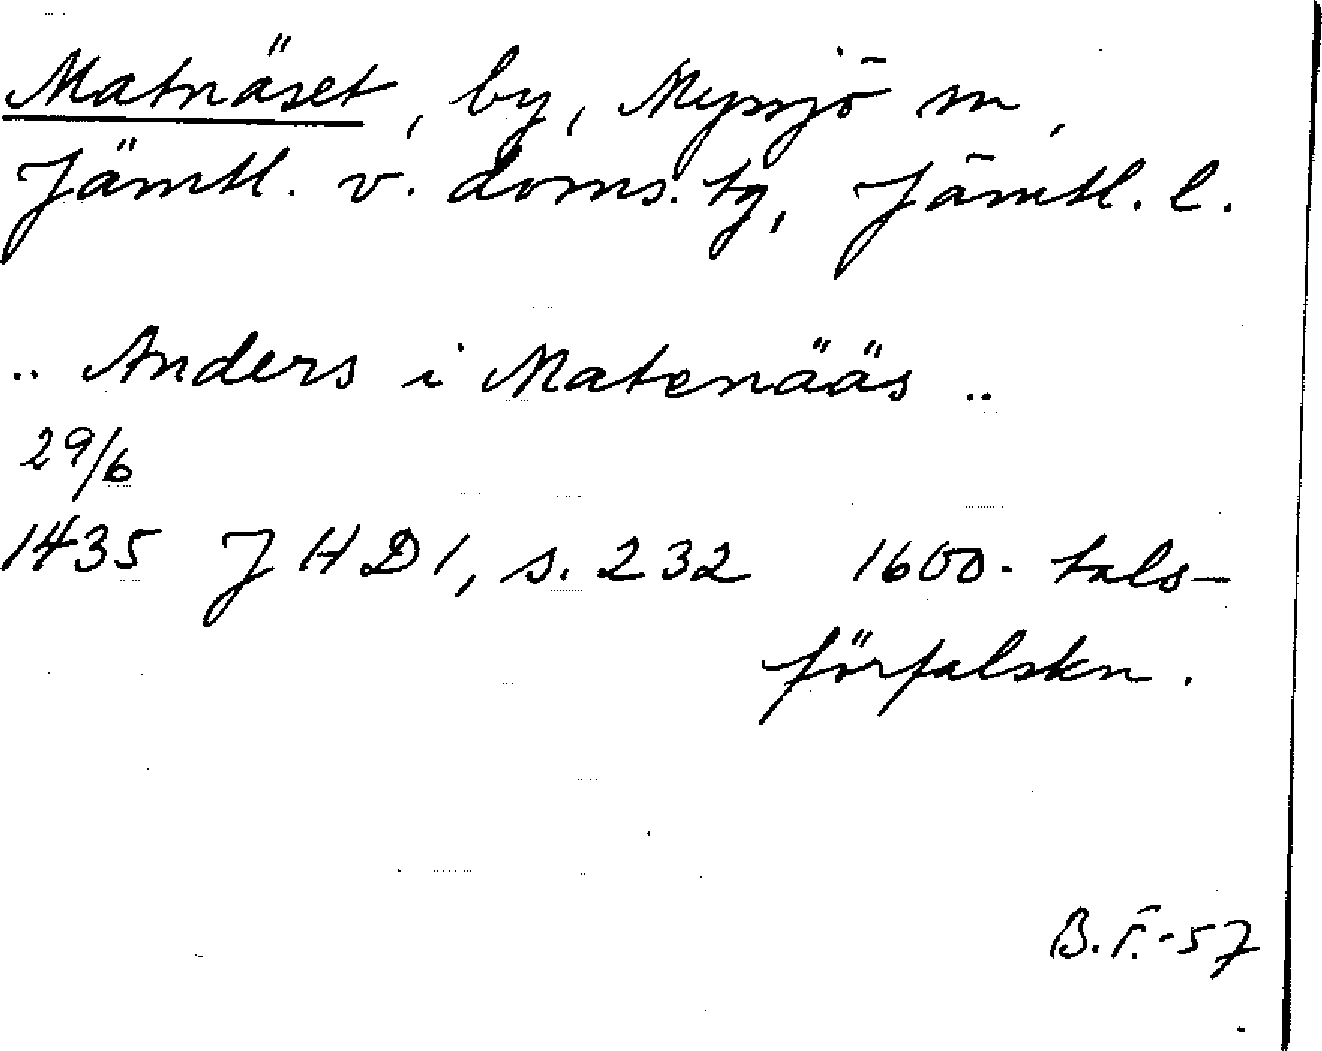 Matnäset, by, Myssjö sn,
Jämtl. v. doms. tg, Jämtl. l.
.. Anders i Matenääs ..
29/6
1435 JHD 1, s. 232 1600-tals-
förfalskn.
B.F.-57